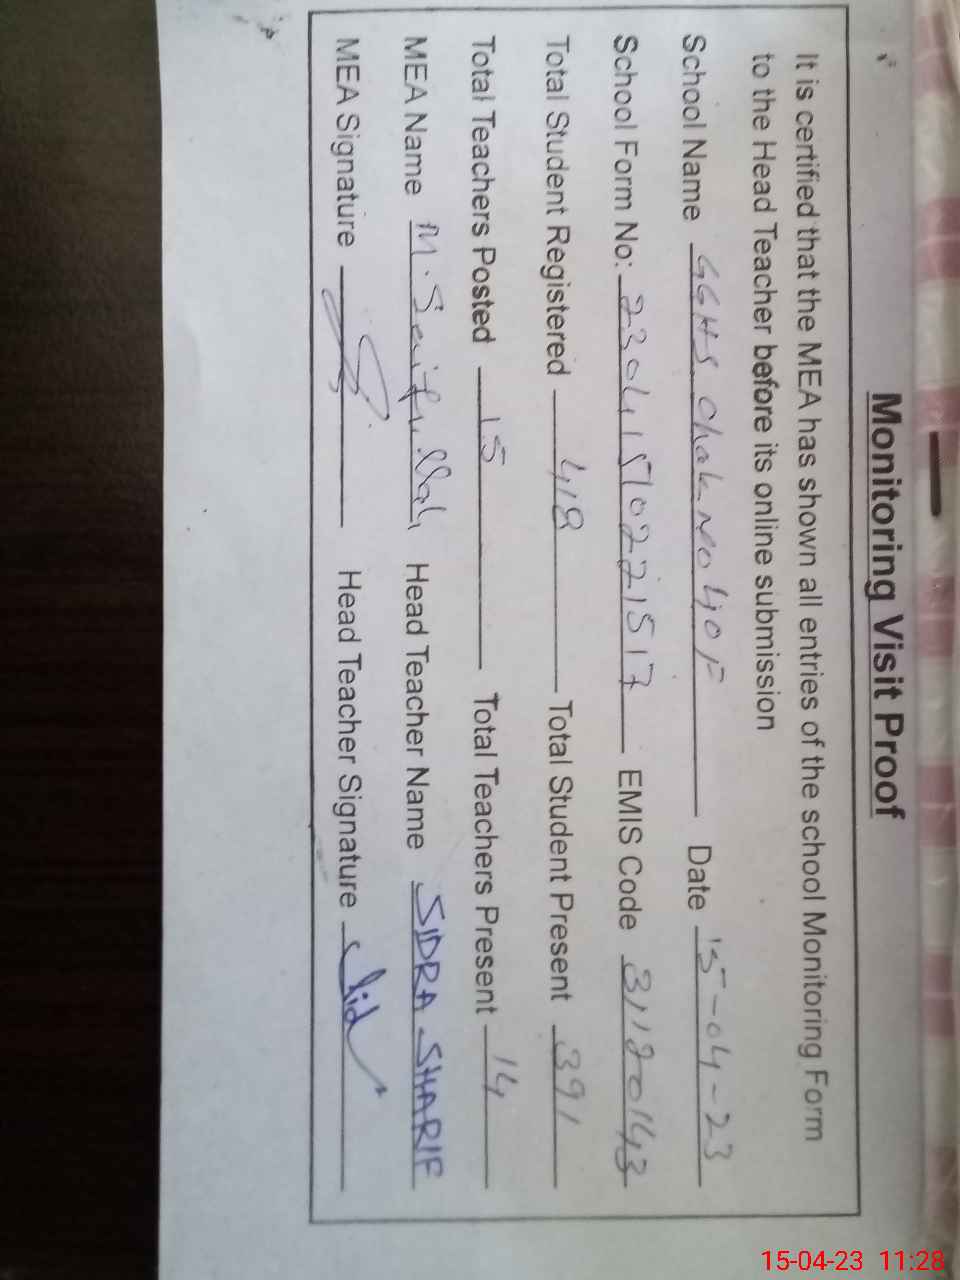 Monitoring Visit Proof
It is certified that the MEA has shown all entries of the school Monitoring Form
to the Head Teacher before its online submission
School Name GGHS Chak No 440F Date 15-04-23
School Form No: EMIS Code 31120143
Total Student Registered 418 Total Student Present 391
Total Teachers Posted 15 Total Teachers Present 14
MEA Name M. Saifullah Head Teacher Name SIDRA SHARIF
MEA Signature Head Teacher Signature
15-04-23 11:28